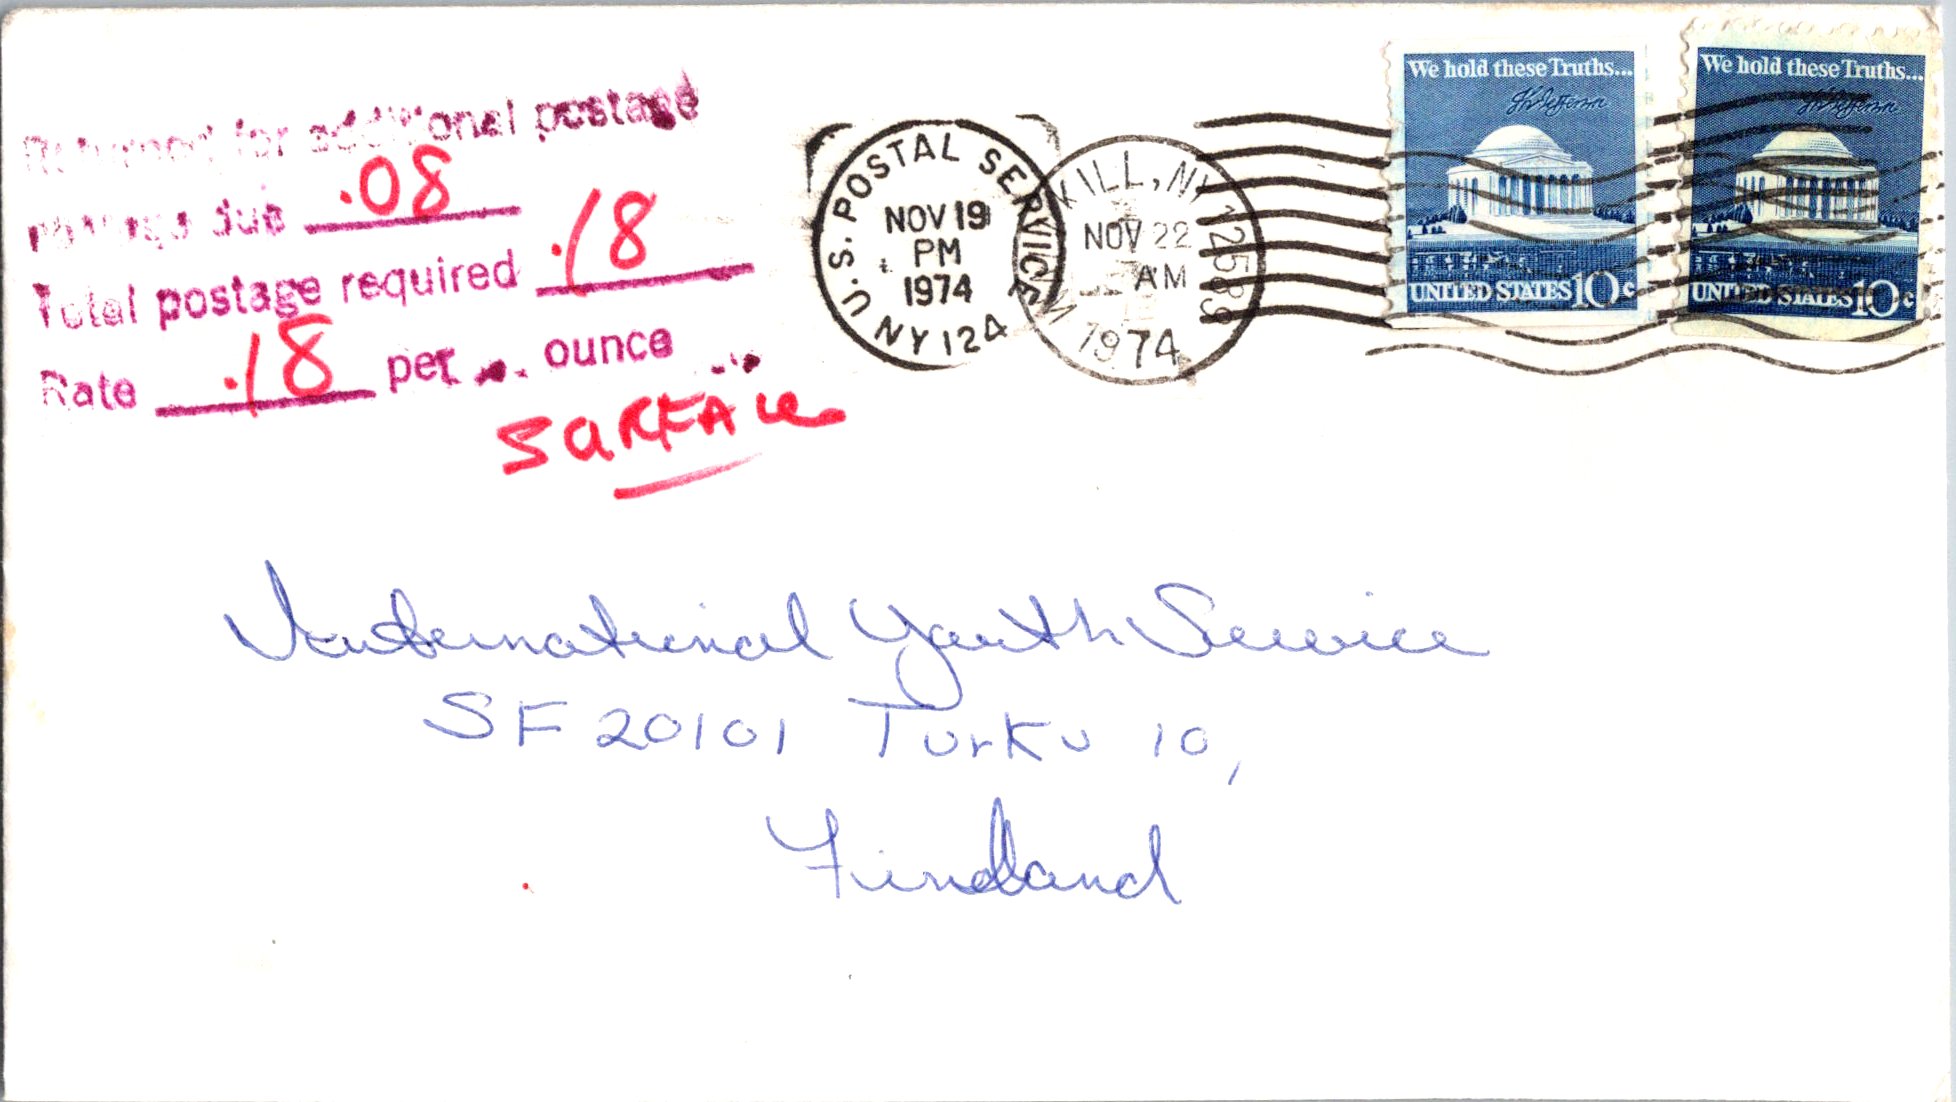 Returned for additional postage
postage due .08
Total postage required .18
Rate .18 per ounce
SURFACE
U.S. POSTAL SERVICE
NOV 19
PM
1974
NY 124
WALLKILL, NY 12589
NOV 22
AM
1974
We hold these Truths...
Th Jefferson
UNITED STATES 10c
We hold these Truths...
Th Jefferson
UNITED STATES 10c
International Youth Service
SF 20101 Turku 10,
Finland